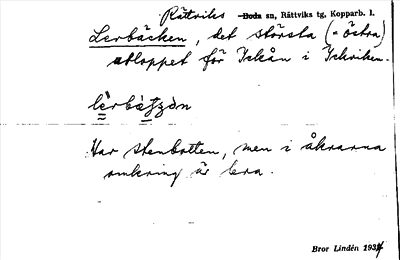 Rättviks Boda sn, Rättviks tg, Kopparb. l.
Lerbäcken, det största (= östra)
utloppet för Ickån i
Har stenbotten, men i åkrarna
omkring är lera.
Bror Lindén 1934